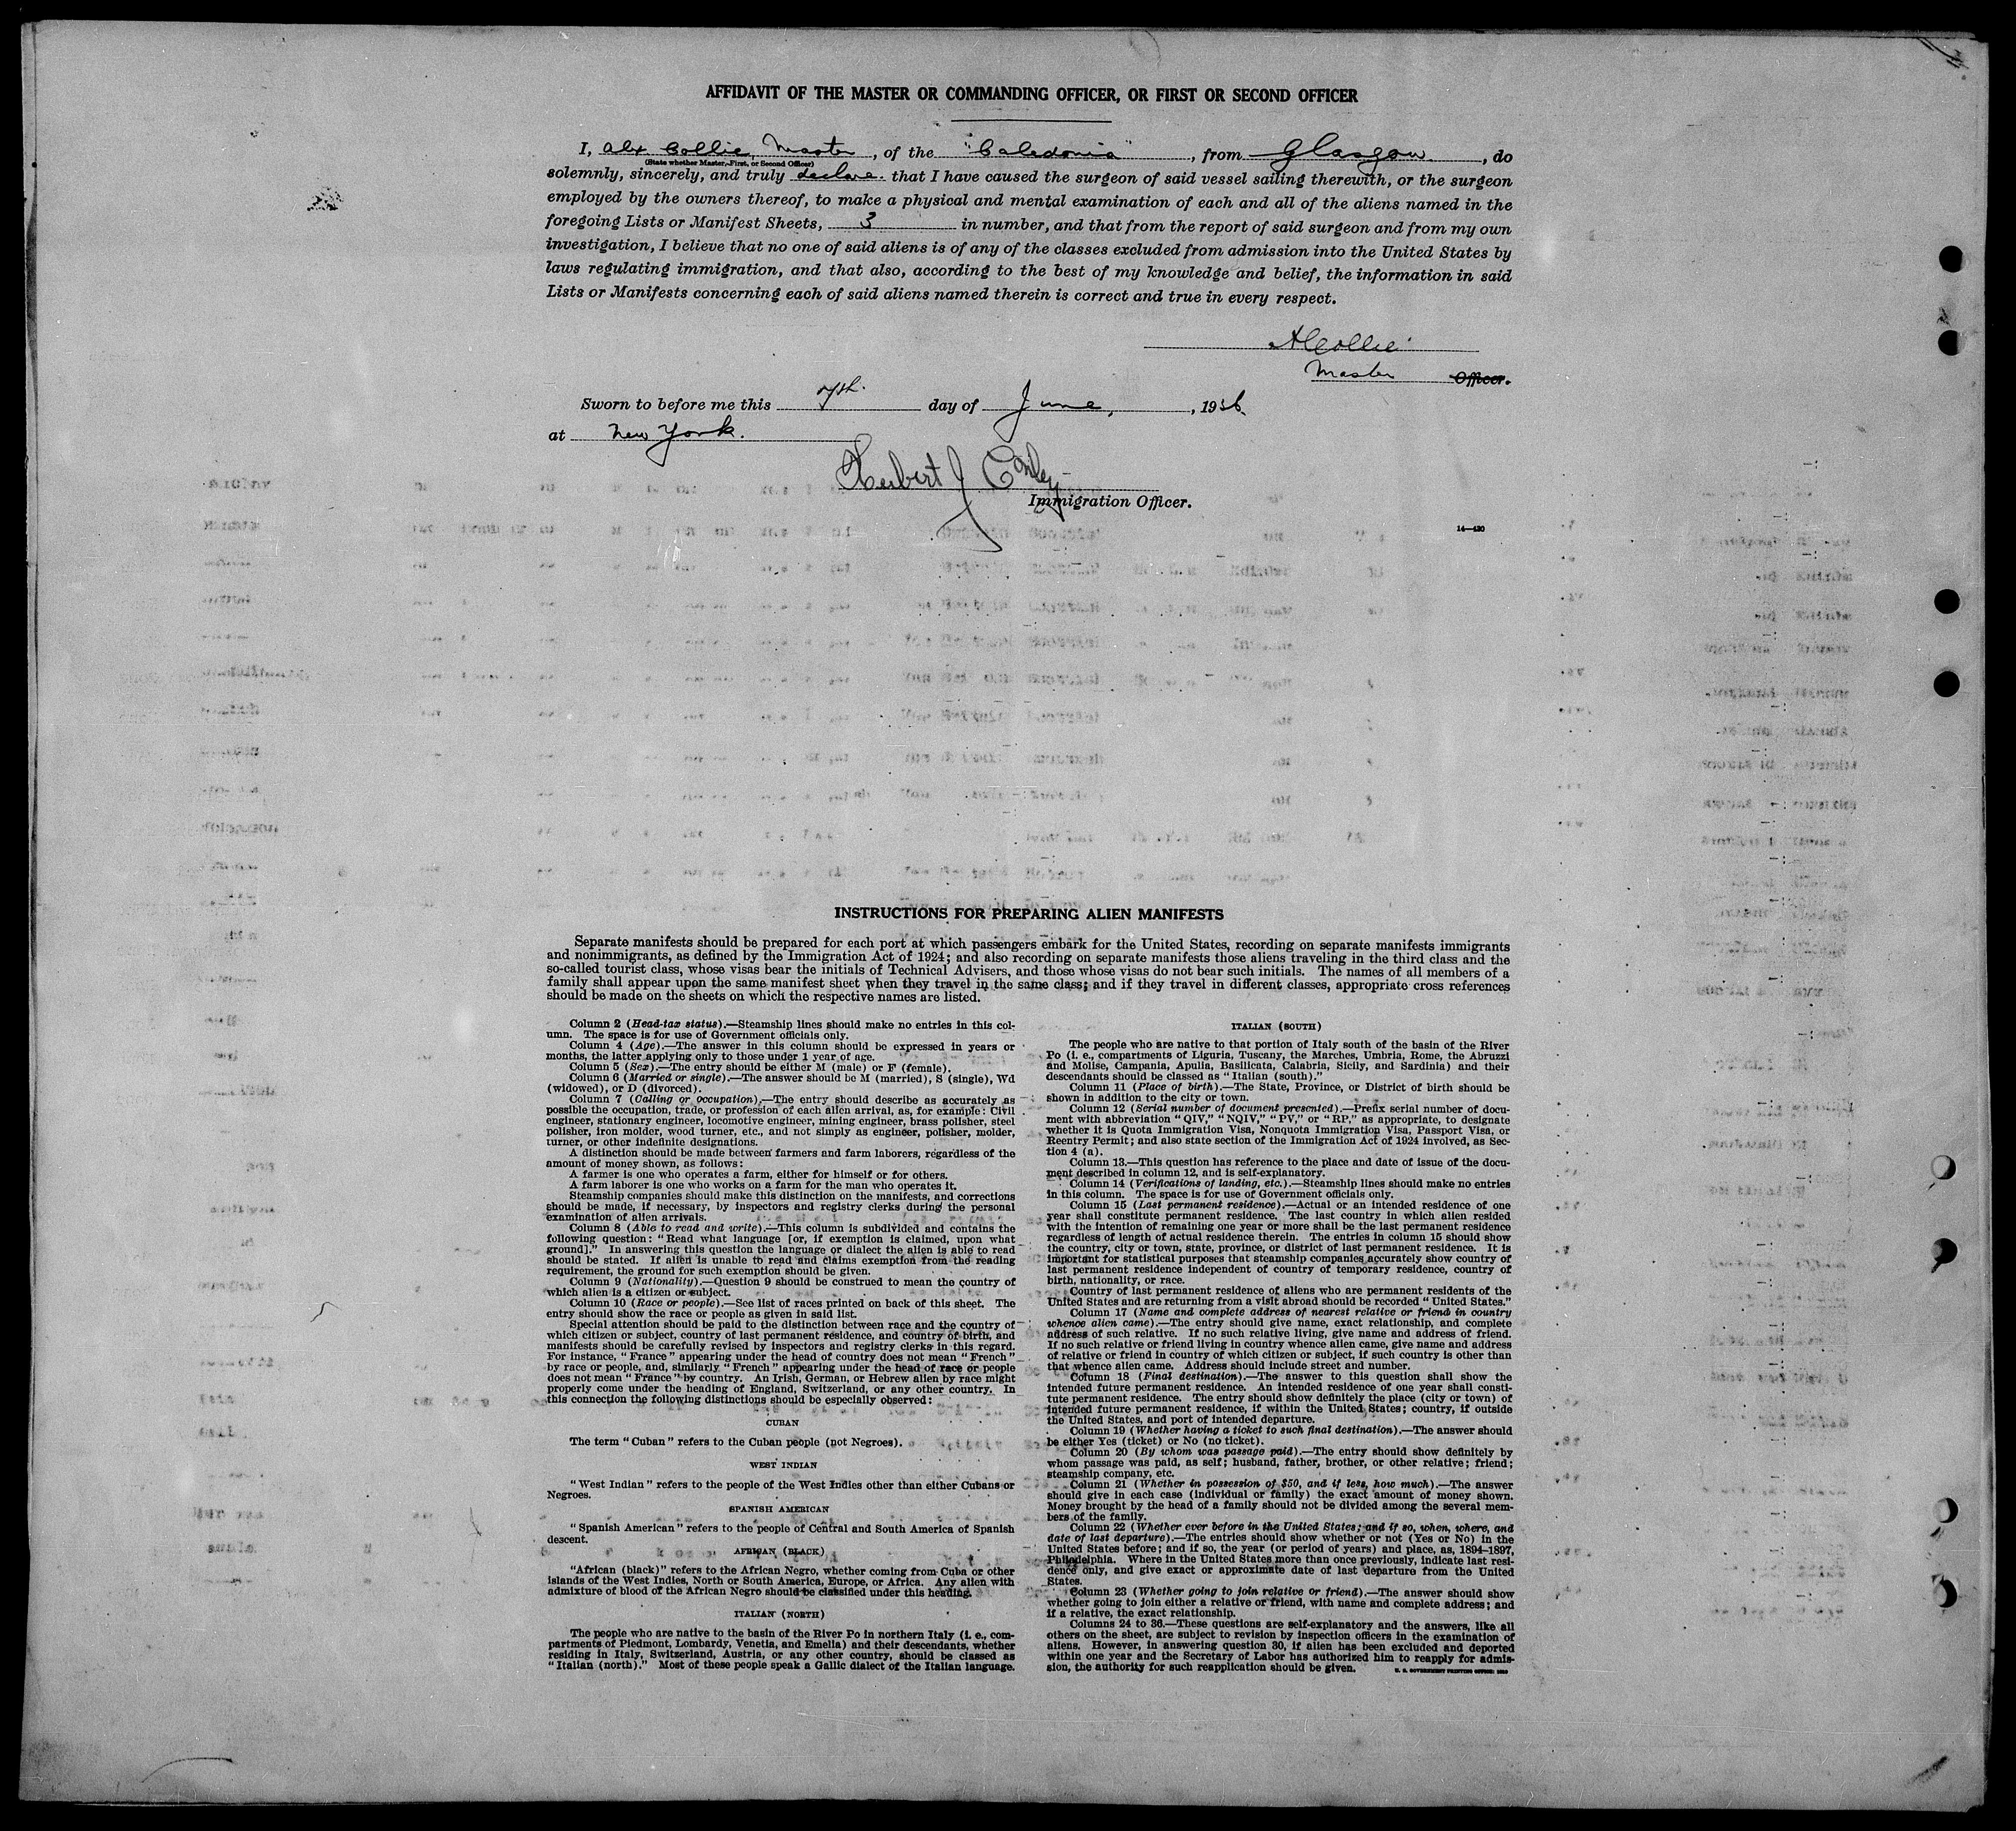 AFFIDAVIT OF THE MASTER OR COMMANDING OFFICER, OR FIRST OR SECOND OFFICER
I, Alex Collie, Master, of the "Caledonia", from Glasgow, do
(State whether Master, First, or Second Officer)
solemnly, sincerely, and truly declare that I have caused the surgeon of said vessel sailing therewith, or the surgeon
employed by the owners thereof, to make a physical and mental examination of each and all of the aliens named in the
foregoing Lists or Manifest Sheets, 3 in number, and that from the report of said surgeon and from my own
investigation, I believe that no one of said aliens is of any of the classes excluded from admission into the United States by
laws regulating immigration, and that also, according to the best of my knowledge and belief, the information in said
Lists or Manifests concerning each of said aliens named therein is correct and true in every respect.
A Collie
Master Officer.
Sworn to before me this 7th. day of June, , 19
at New York.
Herbert J Conley
Immigration Officer.
14—420
INSTRUCTIONS FOR PREPARING ALIEN MANIFESTS
Separate manifests should be prepared for each port at which passengers embark for the United States, recording on separate manifests immigrants
and nonimmigrants, as defined by the Immigration Act of 1924; and also recording on separate manifests those aliens traveling in the third class and the
so-called tourist class, whose visas bear the initials of Technical Advisers, and those whose visas do not bear such initials. The names of all members of a
family shall appear upon the same manifest sheet when they travel in the same class; and if they travel in different classes, appropriate cross references
should be made on the sheets on which the respective names are listed.
Column 2 (Head-tax status).—Steamship lines should make no entries in this col-
umn. The space is for use of Government officials only.
Column 4 (Age).—The answer in this column should be expressed in years or
months, the latter applying only to those under 1 year of age.
Column 5 (Sex).—The entry should be either M (male) or F (female).
Column 6 (Married or single).—The answer should be M (married), S (single), Wd
(widowed), or D (divorced).
Column 7 (Calling or occupation).—The entry should describe as accurately as
possible the occupation, trade, or profession of each alien arrival, as, for example: Civil
engineer, stationary engineer, locomotive engineer, mining engineer, brass polisher, steel
polisher, iron molder, wood turner, etc., and not simply as engineer, polisher, molder,
turner, or other indefinite designations.
A distinction should be made between farmers and farm laborers, regardless of the
amount of money shown, as follows:
A farmer is one who operates a farm, either for himself or for others.
A farm laborer is one who works on a farm for the man who operates it.
Steamship companies should make this distinction on the manifests, and corrections
should be made, if necessary, by inspectors and registry clerks during the personal
examination of alien arrivals.
Column 8 (Able to read and write).—This column is subdivided and contains the
following question: "Read what language [or, if exemption is claimed, upon what
ground]." In answering this question the language or dialect the alien is able to read
should be stated. If alien is unable to read and claims exemption from the reading
requirement, the ground for such exemption should be given.
Column 9 (Nationality).—Question 9 should be construed to mean the country of
which alien is a citizen or subject.
Column 10 (Race or people).—See list of races printed on back of this sheet. The
entry should show the race or people as given in said list.
Special attention should be paid to the distinction between race and the country of
which citizen or subject, country of last permanent residence, and country of birth, and
manifests should be carefully revised by inspectors and registry clerks in this regard.
For instance, "France" appearing under the head of country does not mean "French"
by race or people, and, similarly, "French" appearing under the head of race or people
does not mean "France" by country. An Irish, German, or Hebrew alien by race might
properly come under the heading of England, Switzerland, or any other country. In
this connection the following distinctions should be especially observed:
CUBAN
The term "Cuban" refers to the Cuban people (not Negroes).
WEST INDIAN
"West Indian" refers to the people of the West Indies other than either Cubans or
Negroes.
SPANISH AMERICAN
"Spanish American" refers to the people of Central and South America of Spanish
descent.
AFRICAN (BLACK)
"African (black)" refers to the African Negro, whether coming from Cuba or other
islands of the West Indies, North or South America, Europe, or Africa. Any alien with
admixture of blood of the African Negro should be classified under this heading.
ITALIAN (NORTH)
The people who are native to the basin of the River Po in northern Italy (i. e., com-
partments of Piedmont, Lombardy, Venetia, and Emelia) and their descendants, whether
residing in Italy, Switzerland, Austria, or any other country, should be classed as
"Italian (north)." Most of these people speak a Gallic dialect of the Italian language.
ITALIAN (SOUTH)
The people who are native to that portion of Italy south of the basin of the River
Po (i. e., compartments of Liguria, Tuscany, the Marches, Umbria, Rome, the Abruzzi
and Molise, Campania, Apulia, Basilicata, Calabria, Sicily, and Sardinia) and their
descendants should be classed as "Italian (south)."
Column 11 (Place of birth).—The State, Province, or District of birth should be
shown in addition to the city or town.
Column 12 (Serial number of document presented).—Prefix serial number of docu-
ment with abbreviation "QIV," "NQIV," "PV," or "RP," as appropriate, to designate
whether it is Quota Immigration Visa, Nonquota Immigration Visa, Passport Visa, or
Reentry Permit; and also state section of the Immigration Act of 1924 involved, as Sec-
tion 4 (a).
Column 13.—This question has reference to the place and date of issue of the docu-
ment described in column 12, and is self-explanatory.
Column 14 (Verifications of landing, etc.).—Steamship lines should make no entries
in this column. The space is for use of Government officials only.
Column 15 (Last permanent residence).—Actual or an intended residence of one
year shall constitute permanent residence. The last country in which alien resided
with the intention of remaining one year or more shall be the last permanent residence
regardless of length of actual residence therein. The entries in column 15 should show
the country, city or town, state, province, or district of last permanent residence. It is
important for statistical purposes that steamship companies accurately show country of
last permanent residence independent of country of temporary residence, country of
birth, nationality, or race.
Country of last permanent residence of aliens who are permanent residents of the
United States and are returning from a visit abroad should be recorded "United States."
Column 17 (Name and complete address of nearest relative or friend in country
whence alien came).—The entry should give name, exact relationship, and complete
address of such relative. If no such relative living, give name and address of friend.
If no such relative or friend living in country whence alien came, give name and address
of relative or friend in country of which citizen or subject, if such country is other than
that whence alien came. Address should include street and number.
Column 18 (Final destination).—The answer to this question shall show the
intended future permanent residence. An intended residence of one year shall consti-
tute permanent residence. The entry should show definitely the place (city or town) of
intended future permanent residence, if within the United States; country, if outside
the United States, and port of intended departure.
Column 19 (Whether having a ticket to such final destination).—The answer should
be either Yes (ticket) or No (no ticket).
Column 20 (By whom was passage paid).—The entry should show definitely by
whom passage was paid, as self; husband, father, brother, or other relative; friend;
steamship company, etc.
Column 21 (Whether in possession of $50, and if less, how much).—The answer
should give in each case (individual or family) the exact amount of money shown.
Money brought by the head of a family should not be divided among the several mem-
bers of the family.
Column 22 (Whether ever before in the United States; and if so, when, where, and
date of last departure).—The entries should show whether or not (Yes or No) in the
United States before; and if so, the year (or period of years) and place, as, 1894-1897,
Philadelphia. Where in the United States more than once previously, indicate last resi-
dence only, and give exact or approximate date of last departure from the United
States.
Column 23 (Whether going to join relative or friend).—The answer should show
whether going to join either a relative or friend, with name and complete address; and
if a relative, the exact relationship.
Columns 24 to 36.—These questions are self-explanatory and the answers, like all
others on the sheet, are subject to revision by inspection officers in the examination of
aliens. However, in answering question 30, if alien has been excluded and deported
within one year and the Secretary of Labor has authorized him to reapply for admis-
sion, the authority for such reapplication should be given.
U. S. GOVERNMENT PRINTING OFFICE: